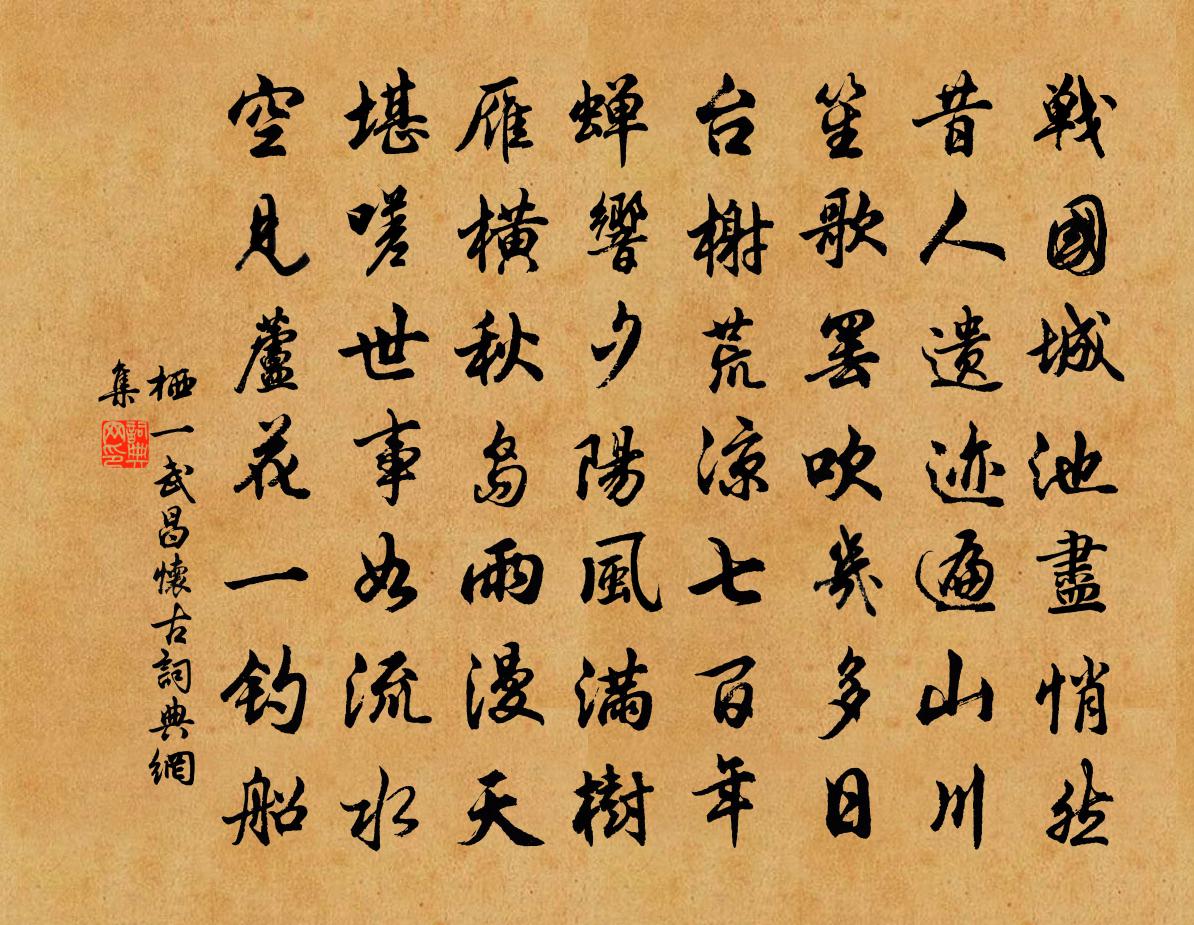 戰國城池盡悄然
昔人遺迹遍山川
笙歌罷吹幾多日
台榭荒凉七百年
蟬響夕陽風滿樹
雁橫秋島雨漫天
堪嗟世事如流水
空見蘆花一釣船
栖一武昌懷古詞典網
集
詞典
网印